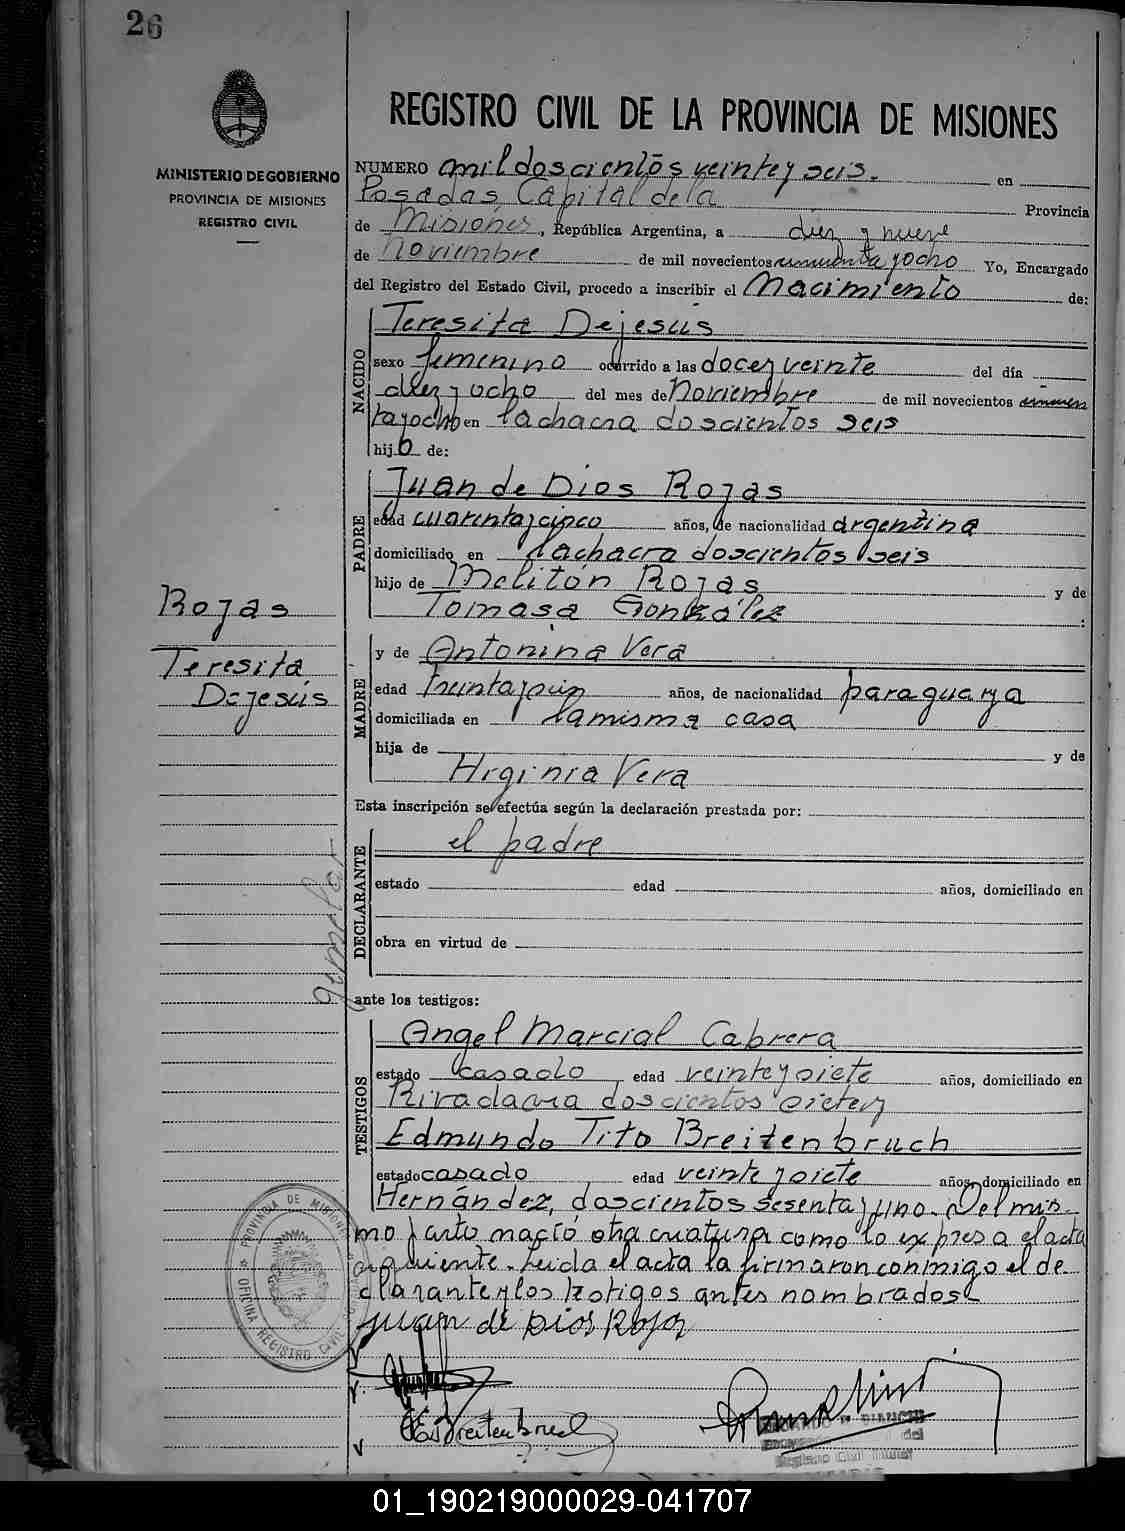 26
REGISTRO CIVIL DE LA PROVINCIA DE MISIONES
MINISTERIO DE GOBIERNO
PROVINCIA DE MISIONES
REGISTRO CIVIL
NUMERO mil doscientos veinte y seis. en
Posadas, Capital de la Provincia
de Misiones, República Argentina, a diez y nueve
de Noviembre de mil novecientos cincuenta y ocho Yo, Encargado
del Registro del Estado Civil, procedo a inscribir el Nacimiento de:
NACIDO
Teresita Dejesús
sexo femenino ocurrido a las doce y veinte del día
diez y ocho del mes de Noviembre de mil novecientos cincuen
ta y ocho en la chacra doscientos seis
hijo de:
PADRE
Juan de Dios Rojas
edad cuarenta y cinco años, de nacionalidad argentina
domiciliado en la chacra doscientos seis
hijo de Melitón Rojas y de
Tomasa González
Rojas
Teresita
Dejesús
MADRE
y de Antonina Vera
edad treinta y un años, de nacionalidad paraguaya
domiciliada en la misma casa
hija de y de
Higinia Vera
Esta inscripción se efectúa según la declaración prestada por:
DECLARANTE
el padre
estado edad años, domiciliado en
obra en virtud de
gemelar
ante los testigos:
TESTIGOS
Angel Marcial Cabrera
estado casado edad veinte y siete años, domiciliado en
Rivadavia doscientos siete y
Edmundo Tito Breitenbruch
estado casado edad veinte y siete años, domiciliado en
Hernández, doscientos sesenta y uno. Del mis
mo parto nació otra criatura como lo expresa el acta
siguiente. Leida el acta la firmaron conmigo el de
clarante y los testigos antes nombrados
Juan de Dios Rojas
PROVINCIA DE MISIONES
OFICINA REGISTRO CIVIL
Breitenbruch
01_190219000029-041707